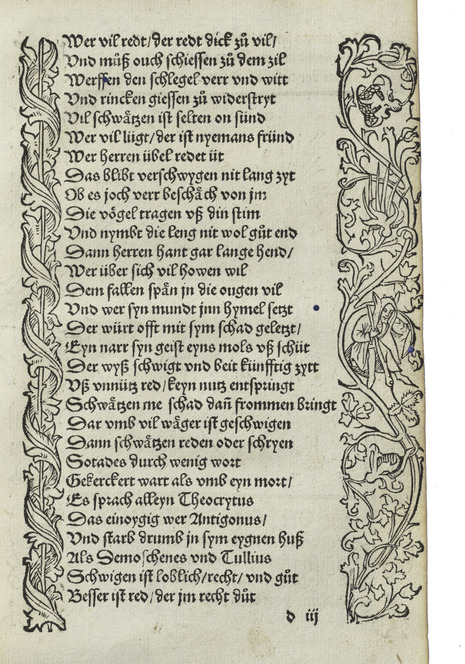 Wer vil redt/der redt dick zů vil/
Vnd můß ouch schiessen zů dem zil
Werffen den schlegel verr vnd witt
Vnd rincken giessen zů widerstryt
Vil schwåtzen ist selten on sünd
Wer vil lügt/der ist nyemans fründ
Wer herren übel redet üt
Das blibt verschwygen nit lang zyt
Ob es joch verr beschåch von jm
Die vögel tragen vß din stim
Vnd nymbt die leng nit wol gůt end
Dann herren hant gar lange hend/
Wer über sich vil howen wil
Dem fallen spån jn die ougen vil
Vnd wer syn mundt jnn hymel setzt
Der würt offt mit sym schad geletzt/
Eyn narr syn geist eyns mols vß schüt
Der wyß schwigt vnd beit künfftig zytt
Vß vnnütz red/keyn nutz entspringt
Schwåtzen me schad dañ frommen bringt
Dar vmb vil wåger ist geschwigen
Dann schwåtzen reden oder schryen
Sotades durch wenig wort
Gekerckert wart als vmb eyn mort/
Es sprach alleyn Theocrytus
Das einoygig wer Antigonus/
Vnd starb drumb jn sym eygnen huß
Als Demoschenes vnd Tullius
Schwigen ist loblich/recht/vnd gůt
Besser ist red/der jm recht důt
d iij